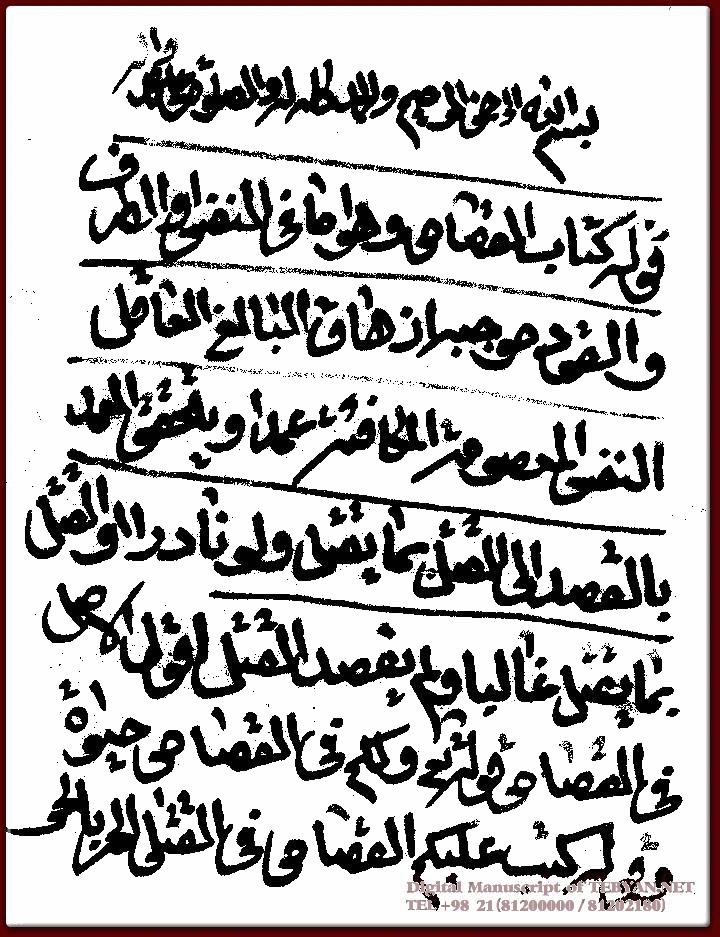 بسم الله الرحمن الرحيم والحمد لله والصلوة على
قوله كتاب القصاص وهو اما في النفس او الطرف
والقود موجبه ازهاق البالغ العاقل
النفس المعصومة المكافئة عمدا ويتحقق العمد
بالقصد الى القتل بما يقتل ولو نادرا او القتل
بما يقتل غالبا وان لم يقصد القتل اقول الاصل
في القصاص قوله تعالى ولكم في القصاص حيوة
وقوله كتب عليكم القصاص في القتلى الحر بالحر
Digital Manuscript of TEBYAN.NET
TEL +98 21 (81200000 / 81202180)